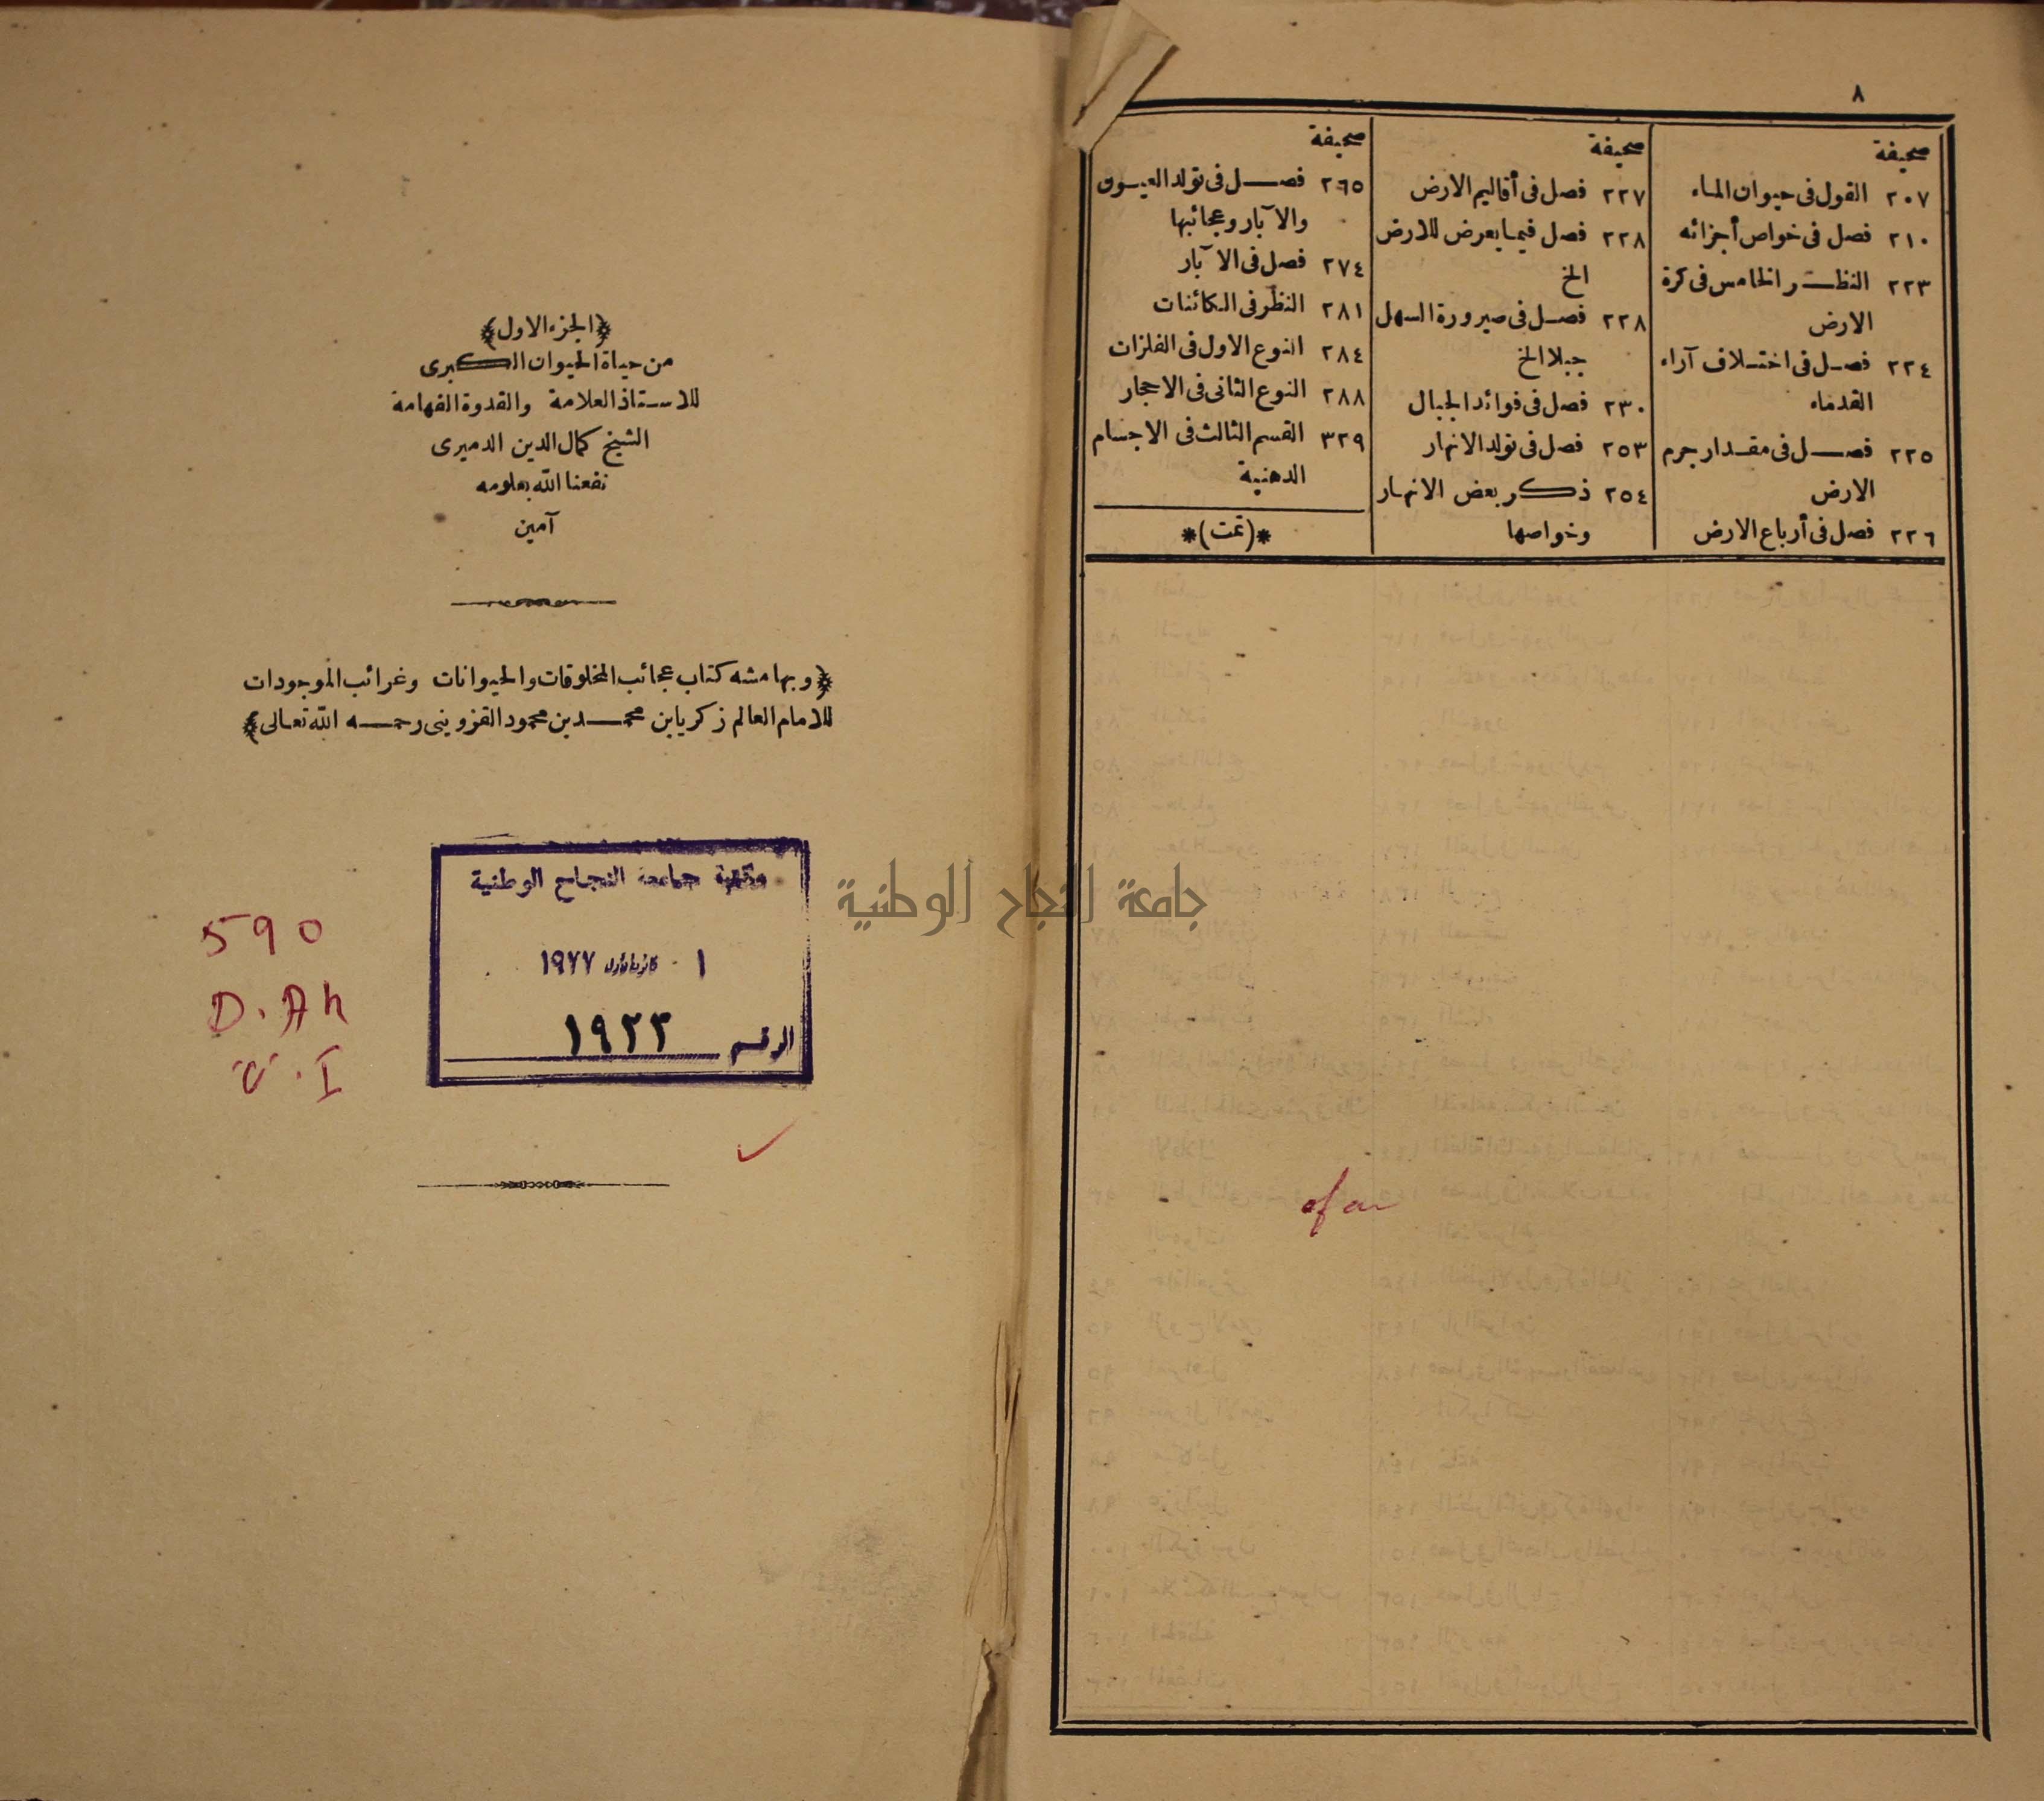 ٨
صحيفة
٢٠٧ القول فى حيوان الماء
٢١٠ فصل فى خواص أجزائه
٢٢٣ النظر الخامس فى كرة
الارض
٢٢٤ فصل فى اختلاف آراء
القدماء
٢٢٥ فصل فى مقدار جرم
الارض
٢٢٦ فصل فى أرباع الارض
صحيفة
٢٢٧ فصل فى أقاليم الارض
٢٢٨ فصل فيما يعرض للارض
الخ
٢٢٨ فصل فى صيرورة السهل
جبلا الخ
٢٣٠ فصل فى فوائد الجبال
٢٥٣ فصل فى تولد الانهار
٢٥٤ ذكر بعض الانهار
وخواصها
صحيفة
٢٦٥ فصل فى تولد العيون
والآبار وعجائبها
٢٧٤ فصل فى الآبار
٢٨١ النظر فى الكائنات
٢٨٤ النوع الاول فى الفلزات
٢٨٨ النوع الثانى فى الاحجار
٣٢٩ القسم الثالث فى الاجسام
الدهنية
*(تمت)*
﴿الجزء الاول﴾
من حياة الحيوان الكبرى
للاستاذ العلامة والقدوة الفهامة
الشيخ كمال الدين الدميرى
نفعنا الله بعلومه
آمين
﴿وبهامشه كتاب عجائب المخلوقات والحيوانات وغرائب الموجودات
للامام العالم زكريا بن محمد بن محمود القزوينى رحمه الله تعالى﴾
مكتبة جامعة النجاح الوطنية
١ كانون الأول ١٩٧٧
الرقم ١٩٢٣
590
D. Ah
v. I
جامعة النجاح الوطنية